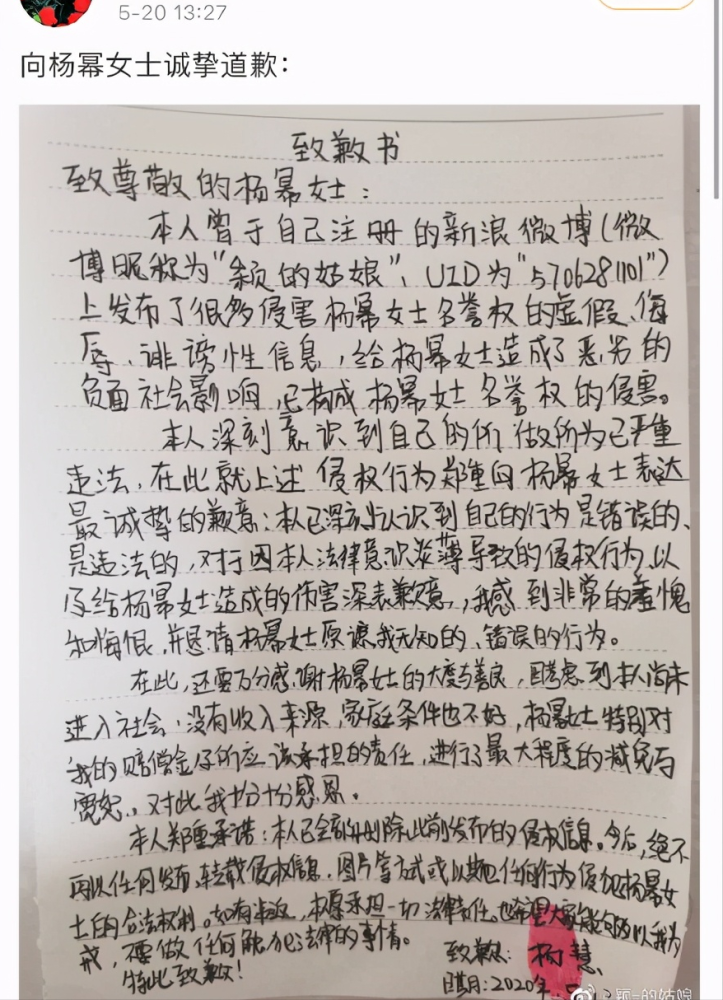 5-20 13:27
向杨幂女士诚挚道歉：
致歉书
致尊敬的杨幂女士：
本人曾于自己注册的新浪微博（微
博昵称为“颖的姑娘”、UID为“5706281101”）
上发布了很多侵害杨幂女士名誉权的虚假、侮
辱、诽谤性信息，给杨幂女士造成了恶劣的
负面社会影响，已构成杨幂女士名誉权的侵害。
本人深刻意识到自己的所做所为已严重
违法，在此就上述侵权行为郑重向杨幂女士表达
最诚挚的歉意：本人已深刻认识到自己的行为是错误的、
是违法的，对于因本人法律意识淡薄导致的侵权行为以
及给杨幂女士造成的伤害深表歉意，我感到非常的羞愧
和悔恨，并恳请杨幂女士原谅我无知的、错误的行为。
在此，还要万分感谢杨幂女士的大度与善良，因考虑到本人尚未
进入社会，没有收入来源，家庭条件也不好，杨幂女士特别对
我的赔偿金及所应该承担的责任，进行了最大程度的减免与
宽恕，对此我十分十分感恩。
本人郑重承诺：本人已全部删除此前发布的侵权信息。今后，绝不
再以任何发布、转载侵权信息、图片等方式或以其他任何行为侵犯杨幂女
士的合法权利。如有违反，本人愿承担一切法律责任。也希望大家能够以我为
戒，不要做任何触犯法律的事情。
特此致歉！
致歉人：杨慧
日期：2020年5
的姑娘